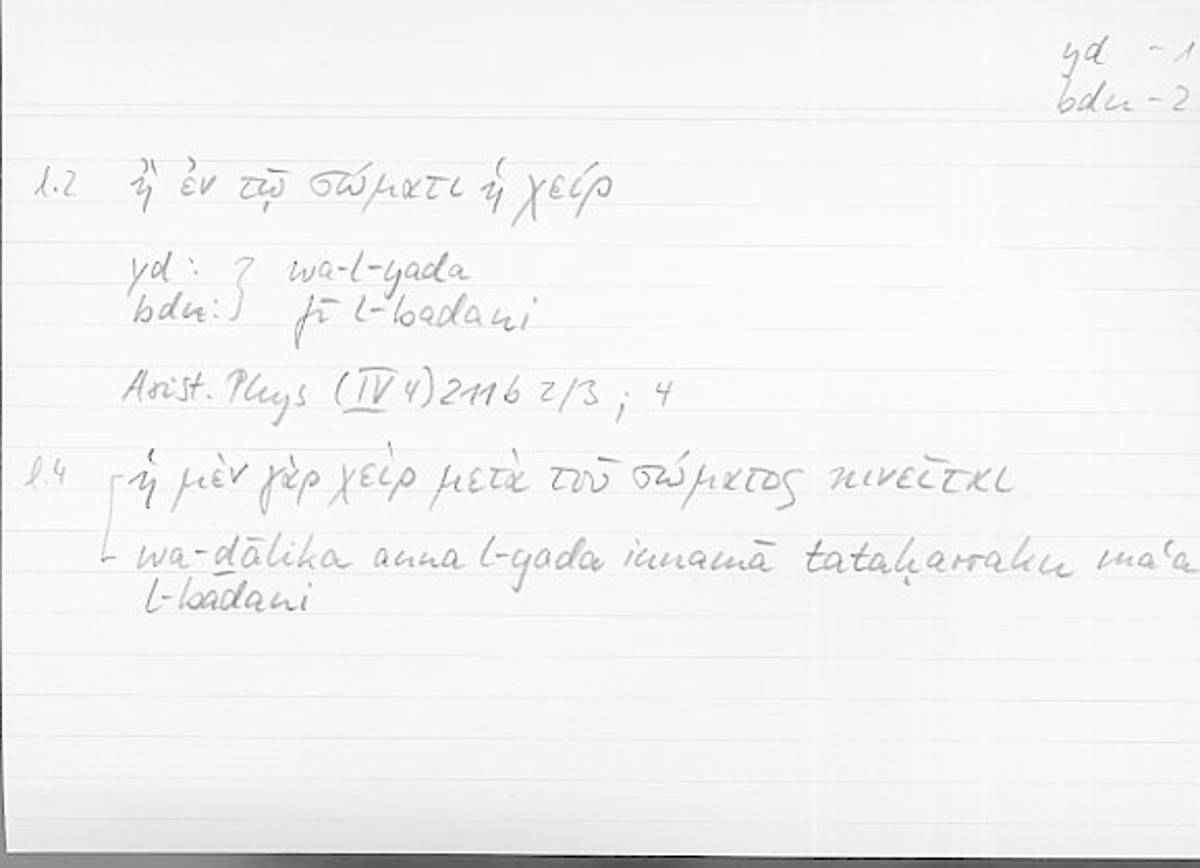 yd - 1
bdn - 2
l.2 ἢ ἐν τῷ σώματι ἡ χείρ
yd: } wa-l-yada
bdn: } fī l-badani
Arist. Phys (IV 4) 211b 2/3 ; 4
l.4 ἡ μὲν γὰρ χεὶρ μετὰ τοῦ σώματος κινεῖται
wa-ḏālika anna l-yada innamā tataḥarraku maʿa
l-badani